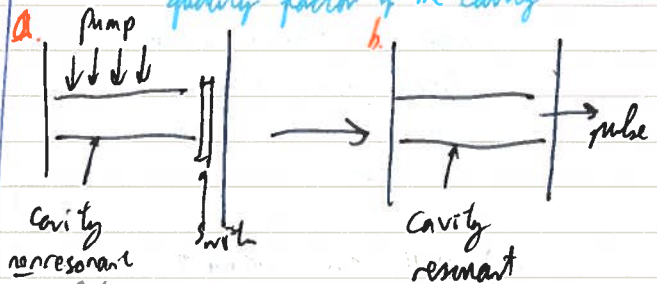 quality factor of the cavity
a.
pump
b.
pulse
cavity
nonresonant
switch
cavity
resonant